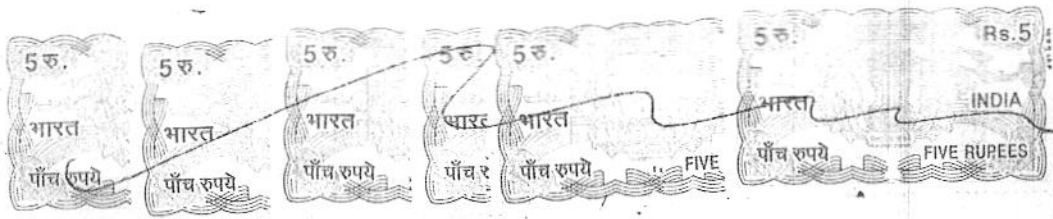 5 रु.
भारत
पाँच रुपये
5 रु.
भारत
पाँच रुपये
5 रु.
भारत
पाँच रुपये
5 रु
भारत
पाँच र
5 रु.
भारत
पाँच रुपये FIVE
5 रु. Rs.5
भारत INDIA
पाँच रुपये FIVE RUPEES